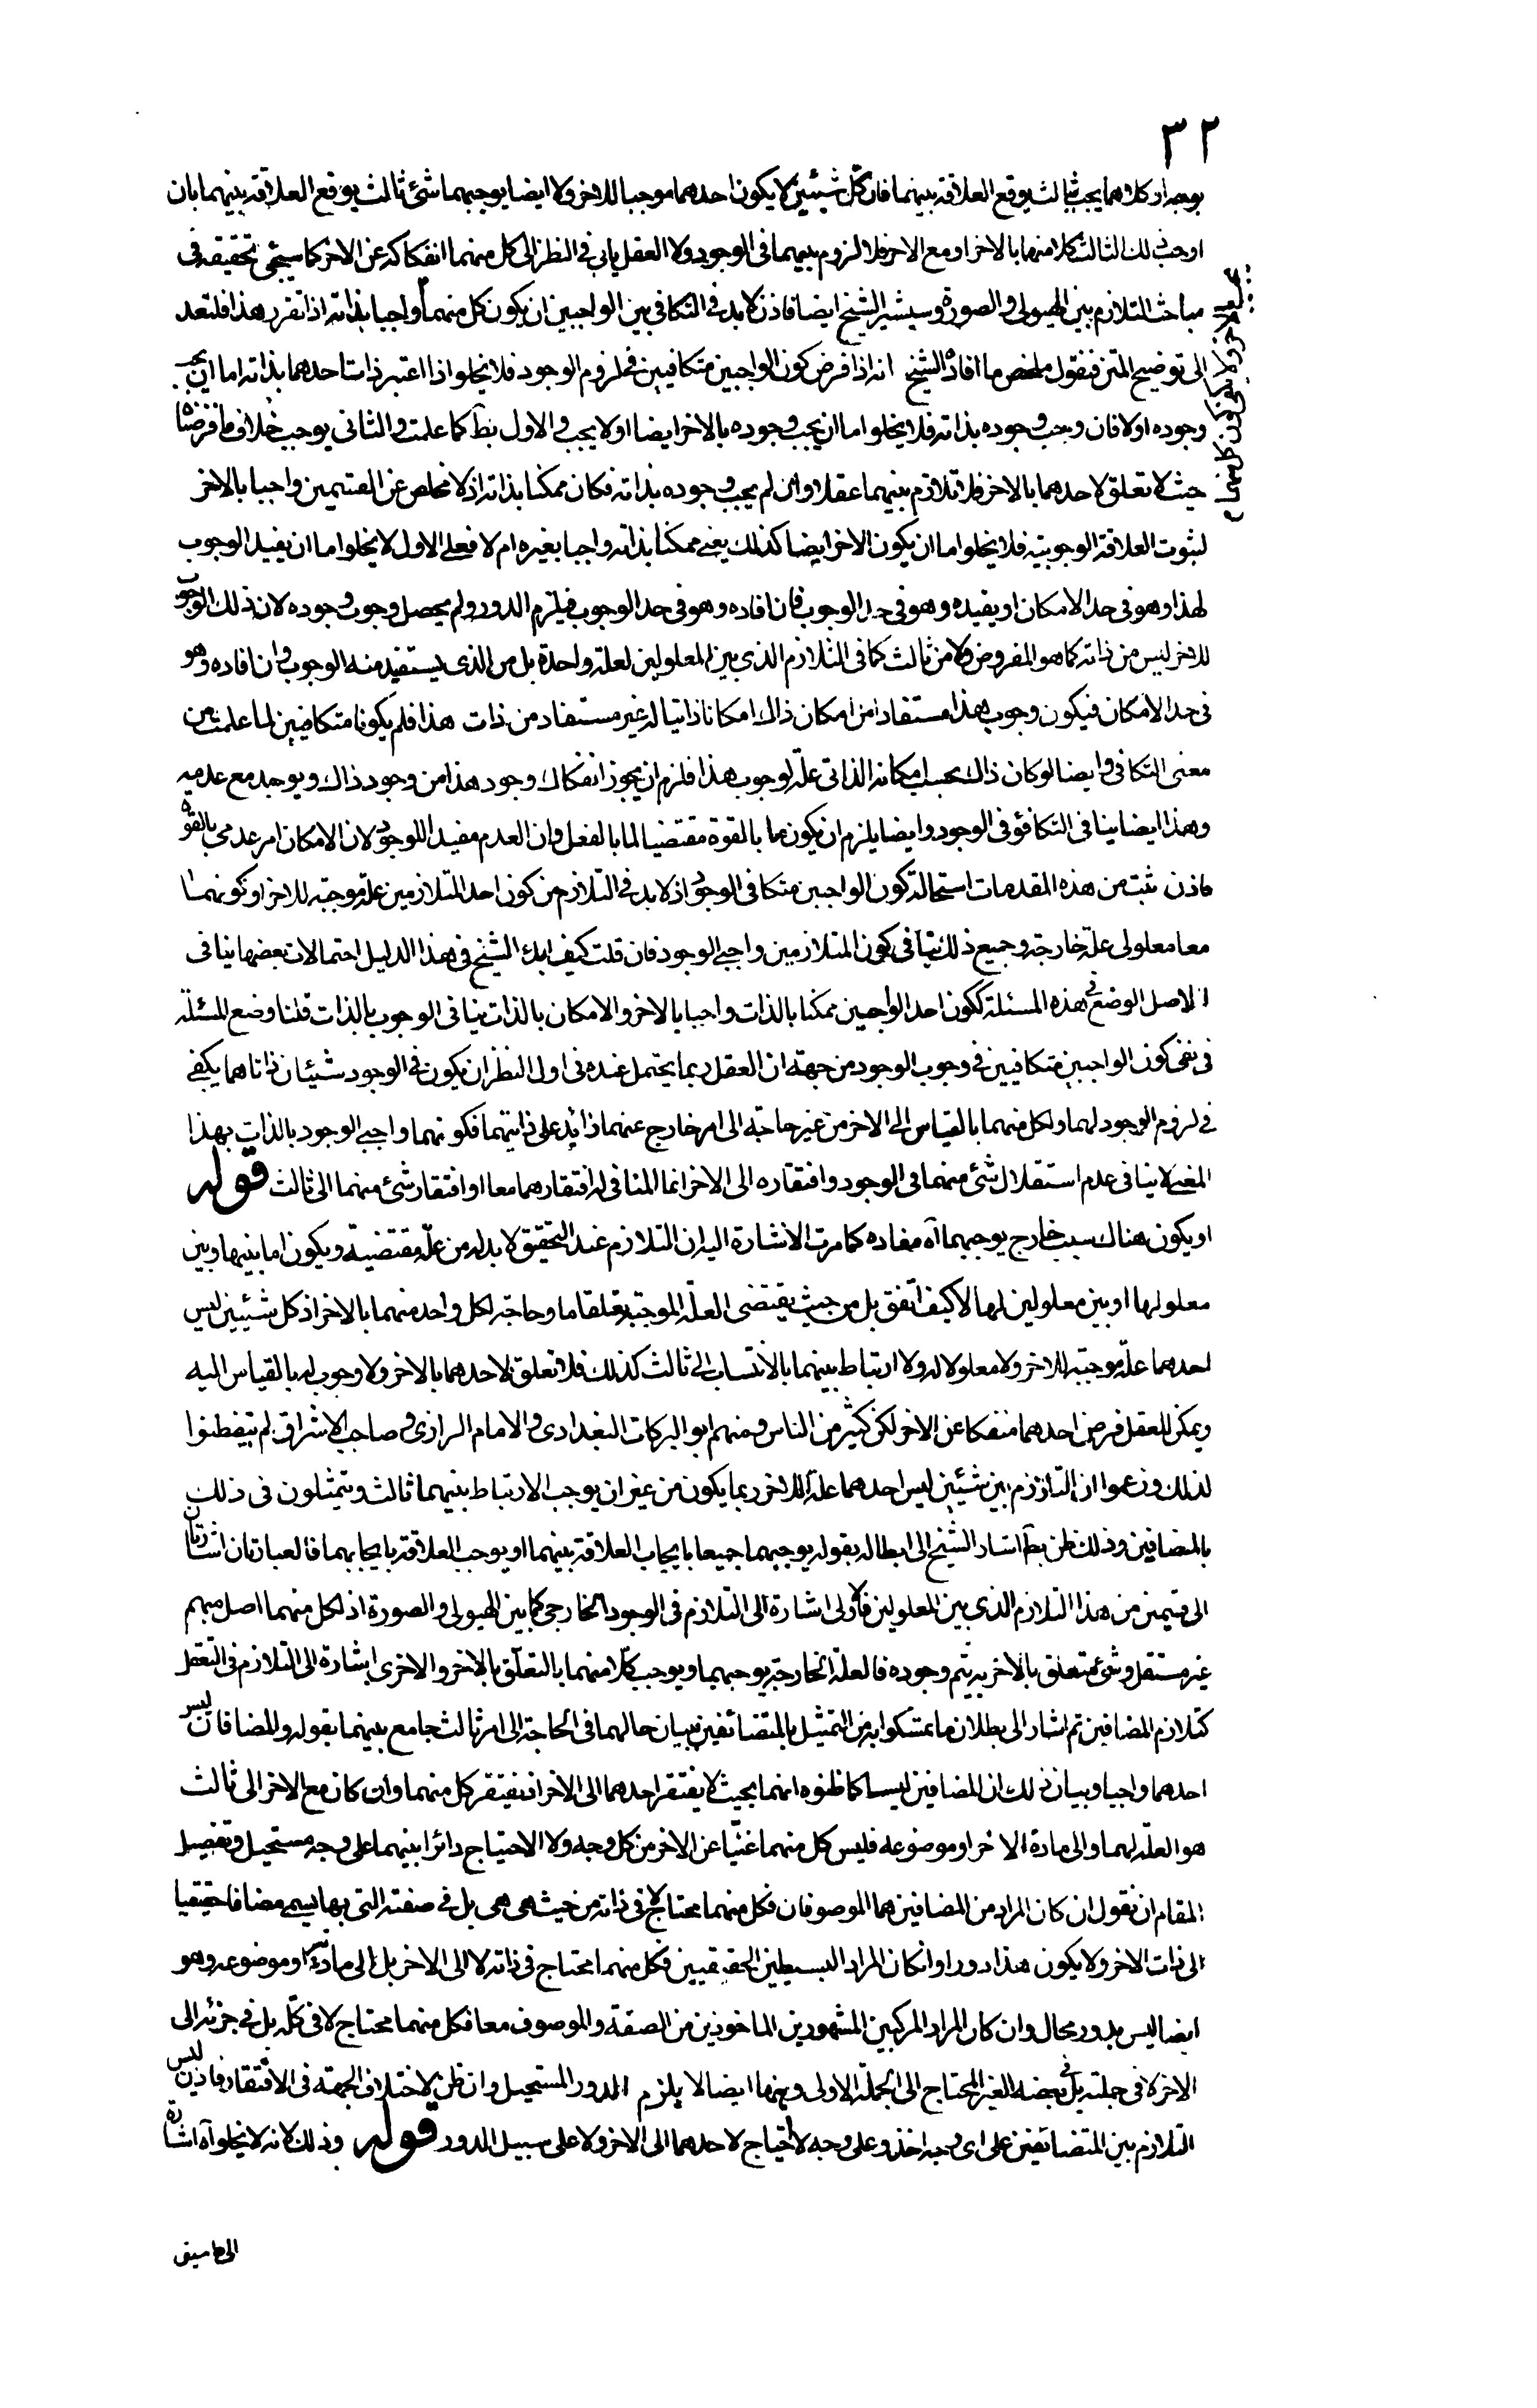 ٣٢
بوجه او كلاهما يجب بثالث يوقع العلاقة بينهما فان كل شيئين لا يكون احدهما موجبا للاخر ولا ايضا يوجبهما شئ ثالث يوقع العلاقة بينهما بان
اوجب ذلك الثالث كلا منهما بالاخر او مع الاخر فلا لزوم بينهما فى الوجود ولا العقل يابى فى النظر الى كل منهما انفكاكه عن الاخر كما سيجئ تحقيقه فى
مباحث التلازم بين الهيولى والصورة وسيشير الشيخ ايضا فاذن لا بد فى التكافى بين الواجبين ان يكون كل منهما واجبا بذاته اذا تقرر هذا فلنعد
الى توضيح المتن فنقول ملخص ما افاده الشيخ انه اذا فرض كون الواجبين متكافيين فى لزوم الوجود فلا يخلو اذا اعتبر ذات احدهما بذاته اما ان يجب
وجوده او لا فان وجب وجوده بذاته فلا يخلو اما ان يجب وجوده بالاخر ايضا او لا يجب والاول بط كما علمت والثانى يوجب خلاف ما فرضناه
حيث لا تعلق لاحدهما بالاخر فلا تلازم بينهما عقلا وان لم يجب وجوده بذاته فكان ممكنا بذاته اذ لا مخلص عن القسمين واجبا بالاخر
لثبوت العلاقة الوجوبية فلا يخلو اما ان يكون الاخر ايضا كذلك يعنى ممكنا بذاته واجبا بغيره ام لا فعلى الاول لا يخلو اما ان يفيد الوجوب
لهذا وهو فى حد الامكان او يفيده وهو فى حد الوجوب فان افاده وهو فى حد الوجوب فيلزم الدور ولم يحصل وجوب وجوده لان ذلك الوجوب
للاخر ليس من ذاته كما هو المفروض ولا من ثالث كما فى التلازم الذى بين المعلولين لعلة واحدة بل من الذى يستفيد منه الوجوب وان افاده وهو
فى حد الامكان فيكون وجوب هذا مستفادا من امكان ذاك امكانا ذاتيا له غير مستفاد من ذات هذا فلم يكونا متكافيين لما علمت من
معنى التكافى وايضا لو كان ذاك بحسب امكانه الذاتى علة لوجوب هذا فلزم ان يجوز انفكاك وجود هذا من وجود ذاك ويوجد مع عدمه
وهذا ايضا ينافى التكافؤ فى الوجود وايضا يلزم ان يكون ما بالقوة مقتضيا لما بالفعل وان العدم مفيدا للوجود لان الامكان امر عدمى بالقوة
فاذن ثبت من هذه المقدمات استحالة كون الواجبين متكافى الوجود اذ لا بد فى التلازم من كون احد المتلازمين علة موجبة للاخر او كونهما
معا معلولى علة خارجة وجميع ذلك ينافى كون المتلازمين واجبى الوجود فان قلت كيف ابدء الشيخ فى هذا الدليل احتمالات بعضها ينافى
الاصل الوضع فى هذه المسئلة ككون احد الواجبين ممكنا بالذات واجبا بالاخر والامكان بالذات ينافى الوجوب بالذات قلنا وضع المسئلة
فى نفى كون الواجبين متكافيين فى وجوب الوجود من جهة ان العقل ربما يحتمل عنده فى اول النظر ان يكون فى الوجود شيئان ذاتاهما يكفى
فى لزوم الوجود لهما ولكل منهما بالقياس الى الاخر من غير حاجة الى امر خارج عنهما زائد على ذاتيهما فكونهما واجبى الوجود بالذات بهذا
المعنى لا ينافى عدم استقلال شئ منهما فى الوجود وافتقاره الى الاخر انما المنافى له افتقارهما معا او افتقار شئ منهما الى ثالث قوله
او يكون هناك سبب خارج يوجبهما آه مفاده كما مرت الاشارة اليه ان التلازم عند التحقيق لا بد له من علة مقتضية ويكون اما بينها وبين
معلولها او بين معلولين لها لا كيف اتفق بل من حيث يقتضى العلة الموجبة تعلقا ما وحاجة لكل واحد منهما بالاخر اذ كل شيئين ليس
احدهما علة موجبة للاخر ولا معلولا له ولا ارتباط بينهما بالانتساب الى ثالث كذلك فلا تعلق لاحدهما بالاخر ولا وجوب له بالقياس اليه
ويمكن للعقل فرض احدهما منفكا عن الاخر لكن كثير من الناس ومنهم ابو البركات البغدادى والامام الرازى وصاحب الاشراق لم يتفطنوا
لذلك وزعموا ان التلازم بين شيئين ليس احدهما علة للاخر ربما يكون من غير ان يوجب الارتباط بينهما ثالث ويتمثلون فى ذلك
بالمضافين وذلك ظن بط اشار الشيخ الى ابطاله بقوله يوجبهما جميعا بايجاب العلاقة بينهما او يوجب العلاقة بايجابهما فالعبارتان اشارتان
الى قسمين من هذا التلازم الذى بين المعلولين فالاولى اشارة الى التلازم فى الوجود الخارجى كما بين الهيولى والصورة اذ لكل منهما اصل مبهم
غير مستقل وشئ متعلق بالاخر به يتم وجوده فالعلة الخارجة يوجبهما ويوجب كلا منهما بالتعلق بالاخر والاخرى اشارة الى التلازم فى التعقل
كتلازم المضافين ثم اشار الى بطلان ما تمسكوا به من التمثيل بالمتضائفين ببيان حالهما فى الحاجة الى امر ثالث جامع بينهما بقوله والمضافان ليس
احدهما واجبا وبيان ذلك ان المضافين ليسا كما ظنوه انهما بحيث لا يفتقر احدهما الى الاخر اذ يفتقر كل منهما وان كان مع الاخر الى ثالث
هو العلة لهما والى مادة الاخر او موضوعه فليس كل منهما غنيا عن الاخر من كل وجه ولا الاحتياج دائرا بينهما على وجه مستحيل وتفصيل
المقام ان نقول ان كان المراد من المضافين هما الموصوفان فكل منهما محتاج لا فى ذاته من حيث هى هى بل فى صفته التى بها يسمى مضافا حقيقيا
الى ذات الاخر ولا يكون هذا دورا وان كان المراد البسيطين الحقيقيين فكل منهما محتاج فى ذاته لا الى الاخر بل الى مادته او موضوعه وهو
ايضا ليس بدور محال وان كان المراد المركبين المشهورين الماخوذين من الصفة والموصوف معا فكل منهما محتاج لا فى كله بل فى جزئه الى
الاخر لا فى جملته بل فى بعضه الغير المحتاج الى الجملة الاولى وههنا ايضا لا يلزم الدور المستحيل وان ظن لاختلاف الجهة فى الافتقار فاذن ليس
التلازم بين المتضائفين على اى وجه اخذ وعلى وجه لا احتياج لاحدهما الى الاخر ولا على سبيل الدور قوله وذلك لانه لا يخلو آه اشارة